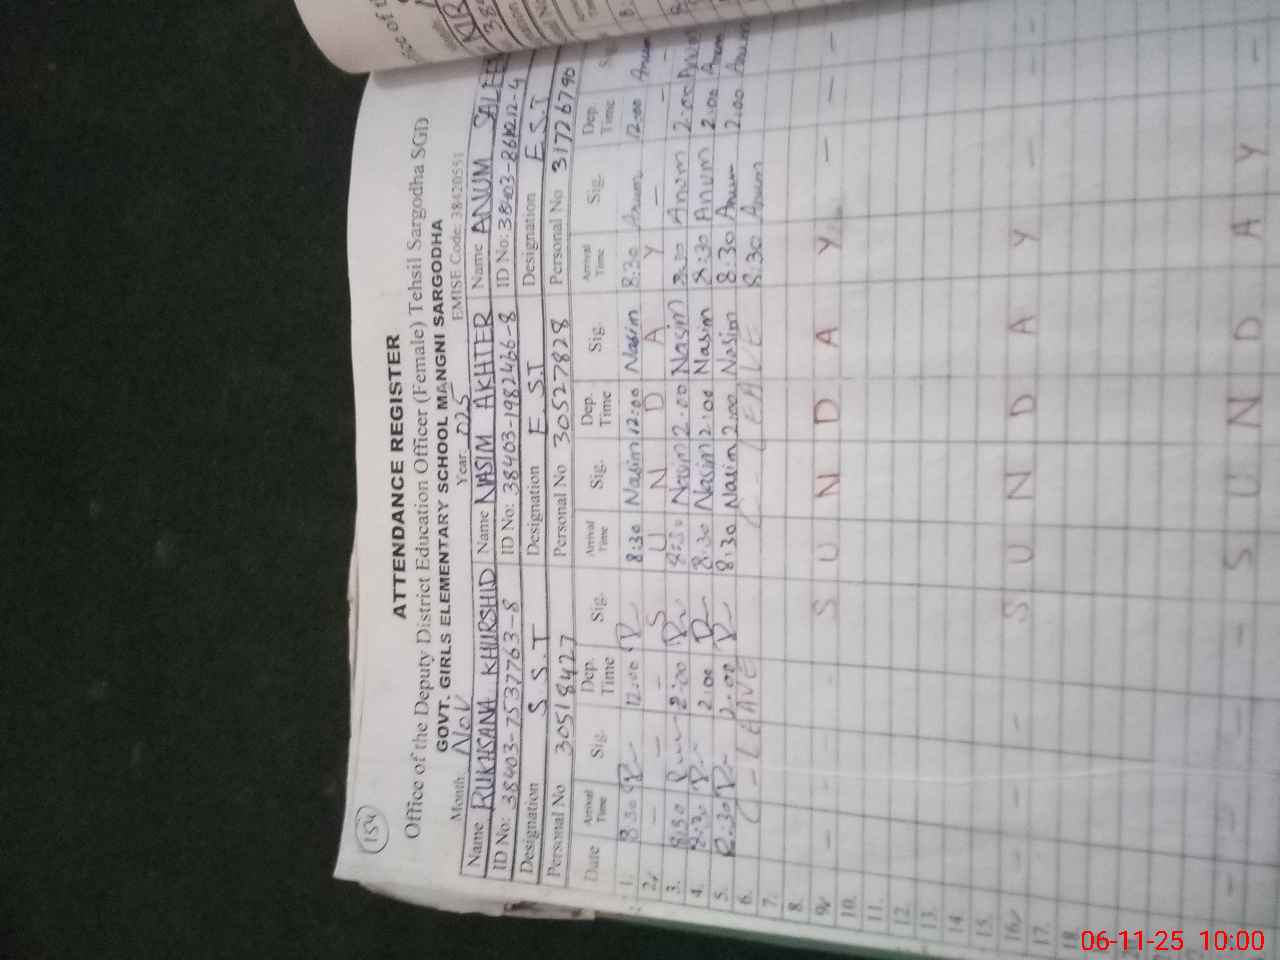 154
ATTENDANCE REGISTER
Office of the Deputy District Education Officer (Female) Tehsil Sargodha SGD
GOVT. GIRLS ELEMENTARY SCHOOL MANGNI SARGODHA
Month Nov Year 025 EMISE Code: 38420551
Name RUKHSANA KHURSHID Name NASIM AKHTER Name ANUM
ID No: 38403-7537763-8 ID No: 38403-1982466-8 ID No:
Designation S.S.T Designation E.S.T Designation E.S.T
Personal No 30518427 Personal No 30527828 Personal No 31726790
Date Arrival Time Sig. Dep. Time Sig. Arrival Time Sig. Dep. Time Sig. Arrival Time Sig. Dep. Time
1. 8:30 12:00 8:30 Nasim 12:00 Nasim 8:30 Anum 12:00 Anum
2. - - - S U N D A Y - - -
3. 8:30 2:00 8:30 Nasim 2:00 Nasim 8:30 Anum 2:00 Anum
4. 8:30 2:00 8:30 Nasim 2:00 Nasim 8:30 Anum 2:00 Anum
5. 8:30 2:00 8:30 Nasim 2:00 Nasim 8:30 Anum 2:00 Anum
6. C - LEAVE C - LEAVE 8:30 Anum
7.
8.
9. - - - S U N D A Y - - -
10.
11.
12.
13.
14.
15.
16. - - - S U N D A Y - - -
17.
18.
- - - - S U N D A Y -
06-11-25 10:00